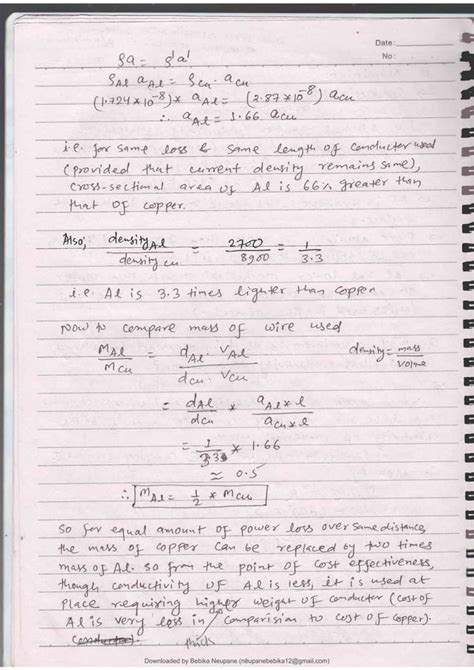 Date:
No:
ϱa = ϱ'a'
ϱAl aAl = ϱCu . aCu
(1.724×10⁻⁸) × aAl = (2.87×10⁻⁸) aCu
∴ aAl = 1.66 aCu
i.e. for same loss & same length of conductor used
(provided that current density remains same),
cross-sectional area of Al is 66% greater than
that of copper.
Also; densityAl / densityCu = 2700 / 8900 = 1 / 3.3
i.e. Al is 3.3 times lighter than copper
Now to compare mass of wire used
MAl / MCu = dAl . VAl / dCu . VCu density = mass / volume
= dAl / dCu × aAl × l / aCu × l
= 1 / 3.3 × 1.66
≈ 0.5
∴ MAl = 1/2 × MCu
So for equal amount of power loss over same distance,
the mass of copper can be replaced by two times
mass of Al. So from the point of cost effectiveness,
though conductivity of Al is less, it is used at
place requiring higher weight of conductor (cost of
Al is very less in comparision to cost of copper).
thick
Downloaded by Bebika Neupane (neupanebebika12@gmail.com)